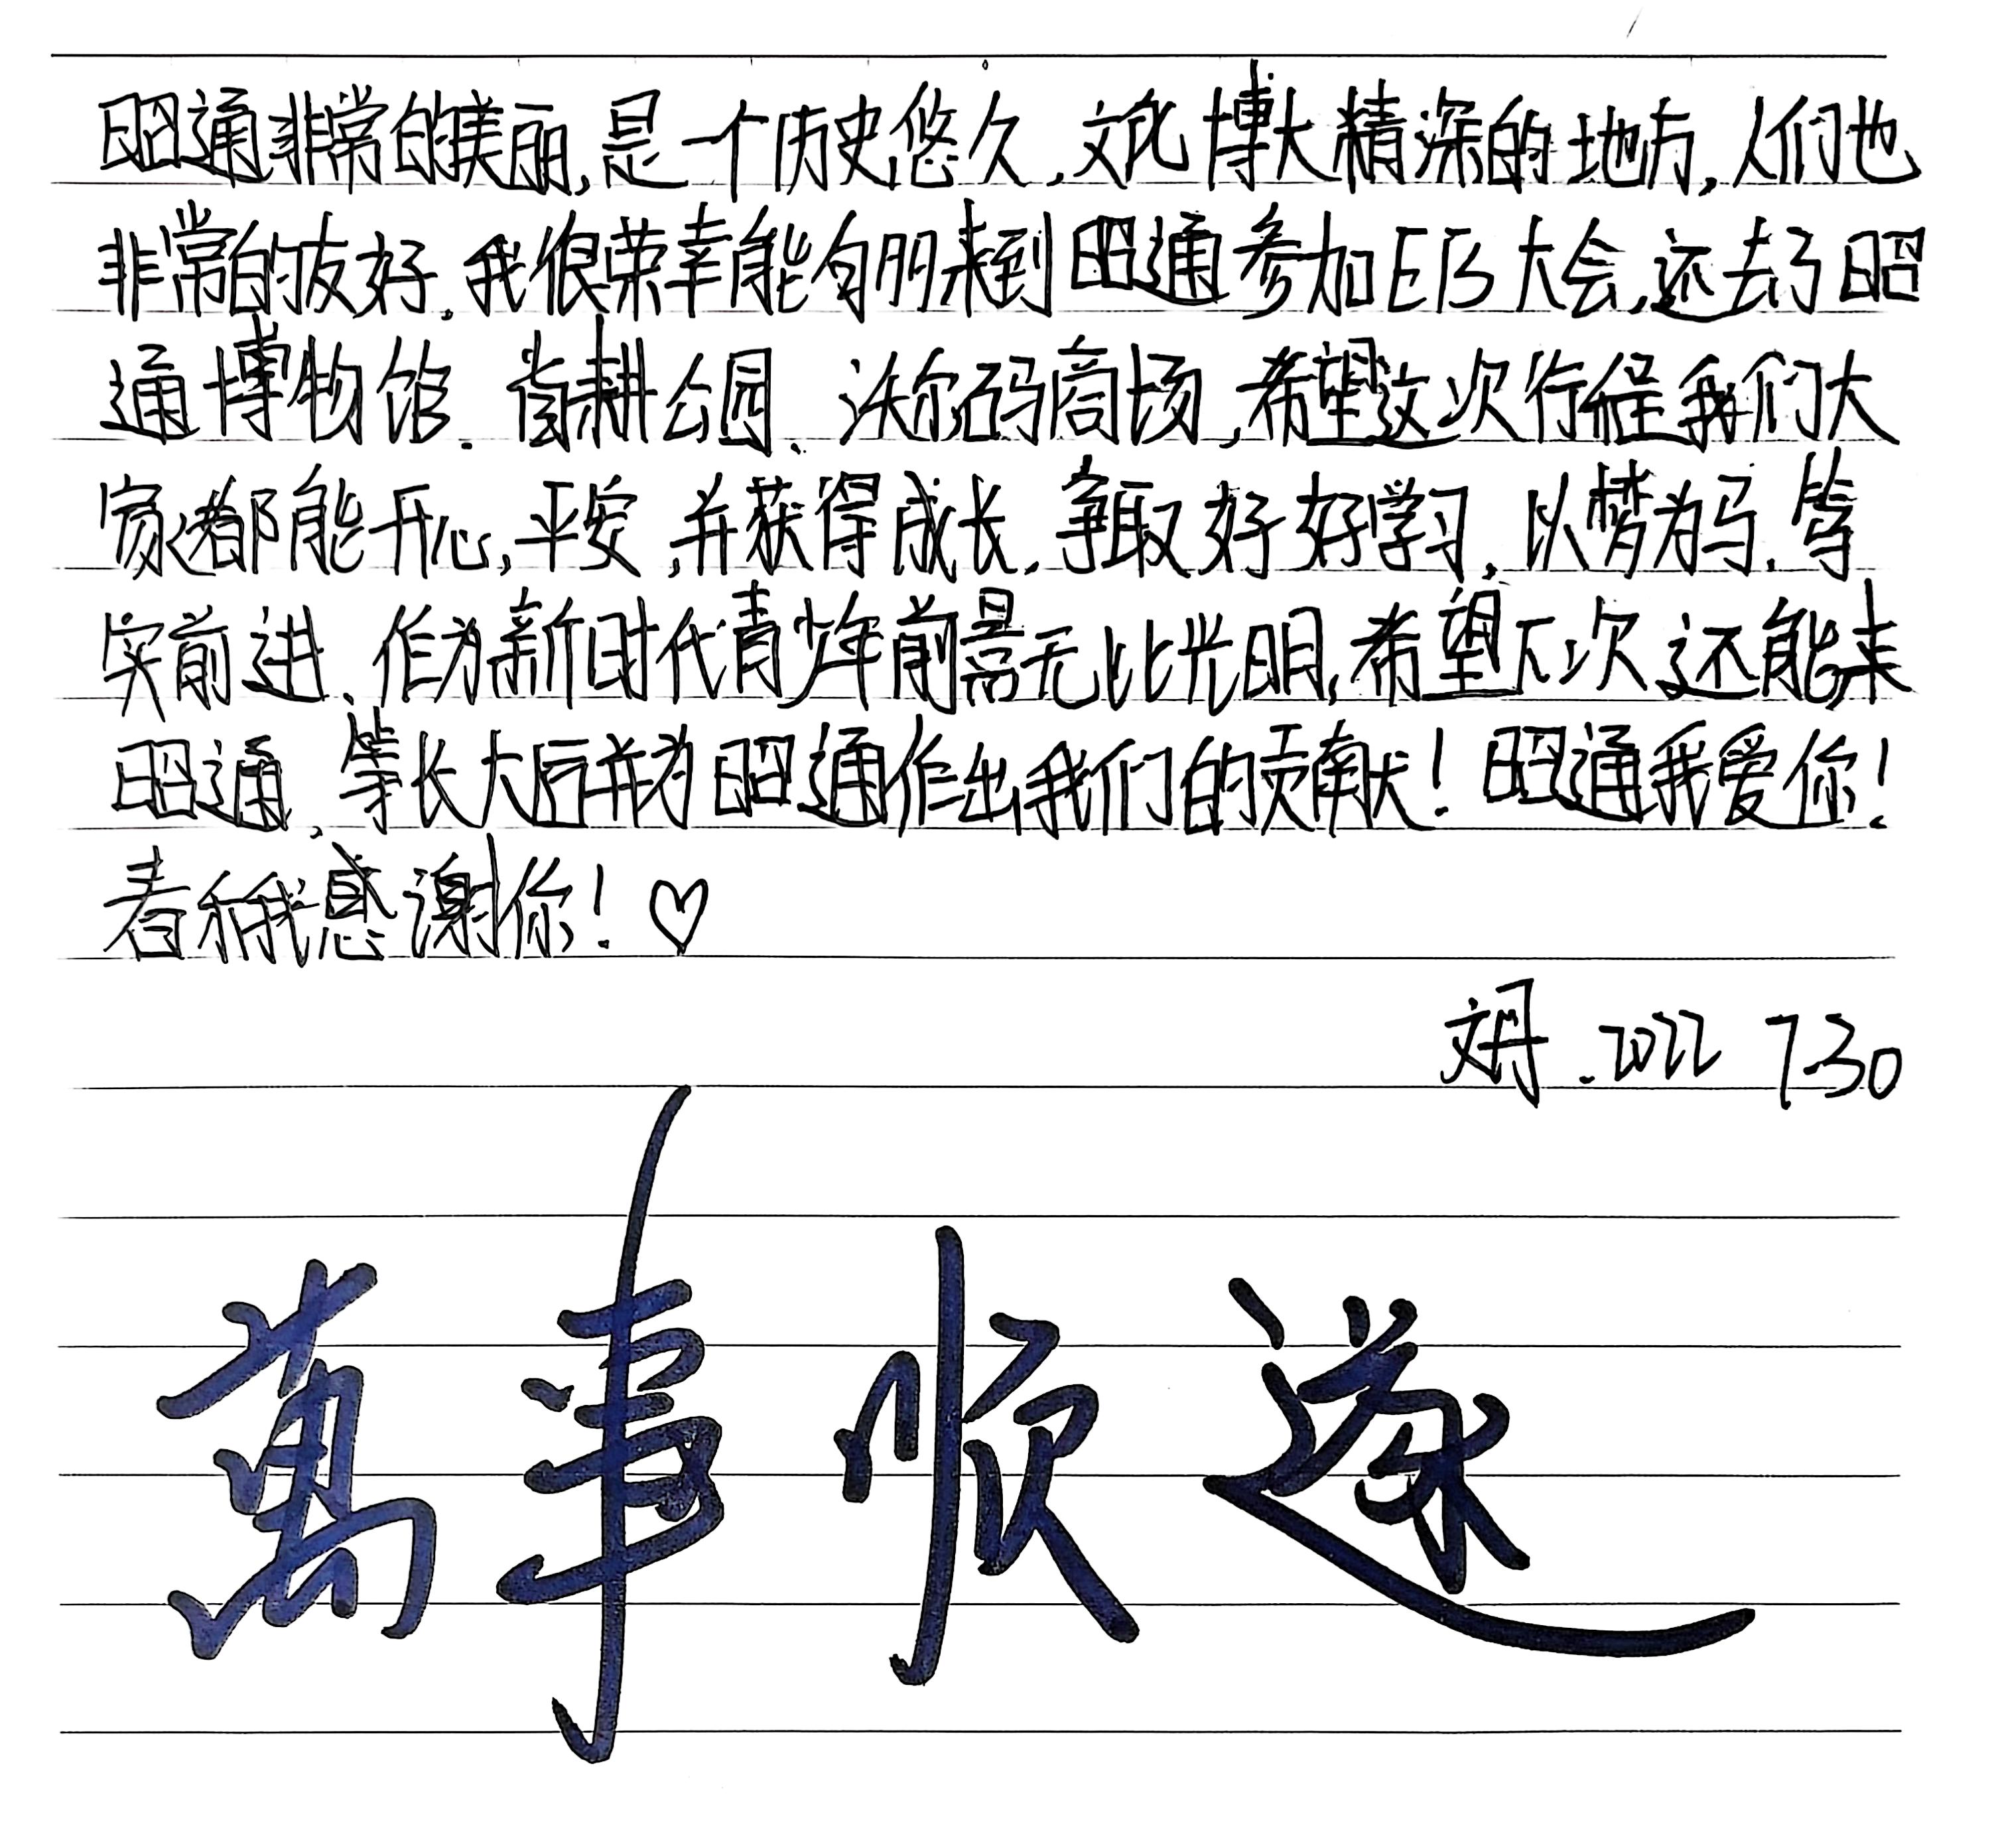 昭通非常的美丽,是一个历史悠久,文化博大精深的地方,人们也
非常的友好.我很荣幸能有朋来到昭通参加EB大会,还去了昭
通博物馆.省耕公园、沃尔码商场,希望这次行程我们大
家都能开心,平安,并获得成长.争取好好学习,以梦为马.笃
实前进、作为新时代青少年前景无比光明,希望下次还能来
昭通,等长大后并为昭通作出我们的贡献!昭通我爱你!
春秋我感谢你!♡
.2022 7.30
萬事顺遂